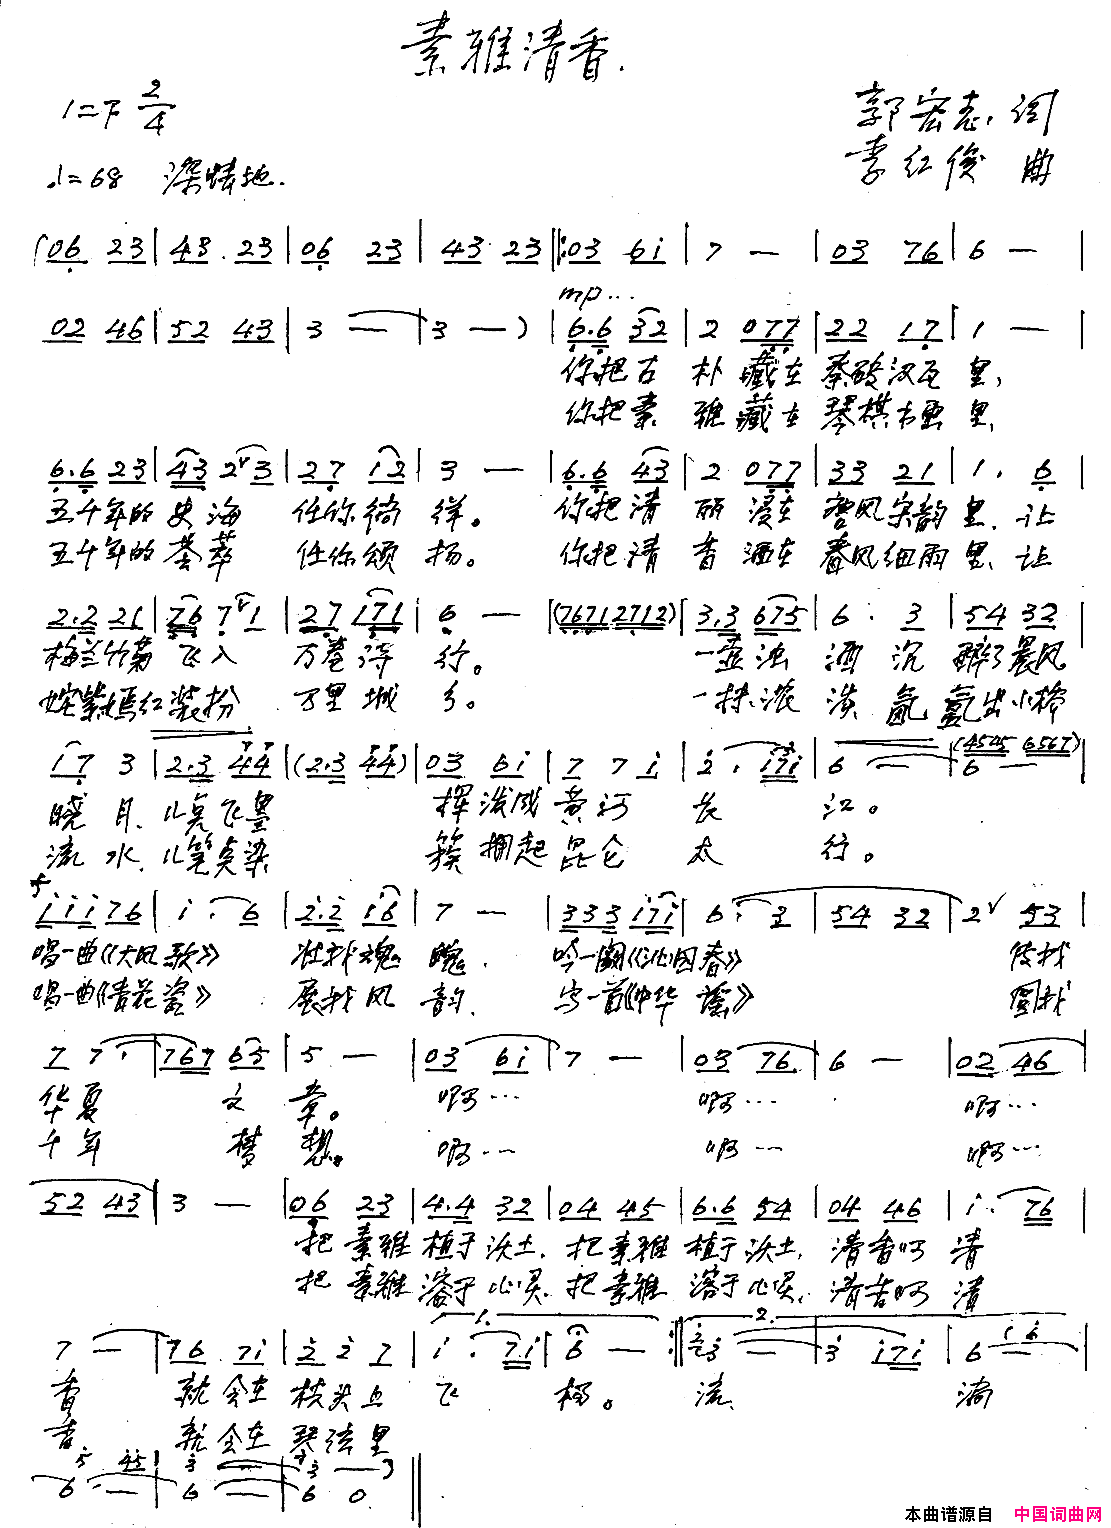 素雅清香.
1=F 2/4
郭宏志 词
♩=68 深情地.
李红俊 曲
(06 23 | 43 23 | 06 23 | 43 23 |: 03 6i | 7 — | 03 76 | 6 — |
mp...
02 46 | 52 43 | 3 — | 3 —) | 6.6 32 | 2 077 | 22 17 | 1 — |
你把古 朴 藏在 秦砖汉瓦 里,
你把素 雅 藏在 琴棋书画 里,
6.6 23 | 43 2 3 | 27 12 | 3 — | 6.6 43 | 2 077 | 33 21 | 1. 6 |
五千年的史海 任你徜 徉。 你把清 丽 浸在 唐风宋韵 里, 让
五千年的荟萃 任你颂 扬。 你把清 香 洒在 春风细雨 里, 让
2.2 21 | 76 7 1 | 27 171 | 6 — | (7671 2712) | 3.3 675 | 6. 3 | 54 32 |
梅兰竹菊 飞入 万卷诗 行。 一壶浊 酒 沉 醉了晨风
姹紫嫣红装扮 万里城 乡。 一抹浓 氤 氲出小桥
i7 3 | 2.3 44 | (2.3 44) | 03 6i | 7 7 i | 2. i7i | 6 — | 6 — |
(4545 6567)
晓 月, 儿 飞墨 挥泼成 黄河 长 江。
流 水, 儿笔点染 簇拥起 昆仑 太 行。
iii76 | i. 6 | 2.2 i6 | 7 — | 333 i7i | 6. 3 | 54 32 | 2 53 |
唱一曲《大风歌》 壮我魂 魄, 吟一阕《沁园春》 我
唱一曲《青花瓷》 展我风 韵, 写一首《中华 谣》 圆我
7 7. | 767 65 | 5 — | 03 6i | 7 — | 03 76 | 6 — | 02 46 |
华夏 文 章。 啊… 啊… 啊…
千年 梦 想。 啊… 啊… 啊…
52 43 | 3 — | 06 23 | 4.4 32 | 04 45 | 6.6 54 | 04 46 | i. 76 |
把 素雅 植于沃土, 把 素雅 植于沃土, 清香啊 清
把 素雅 溶于心灵, 把 素雅 溶于心灵, 清香啊 清
1. 2.
7 — | 76 7i | 2 2 7 | i. 7i | 6 — :| 3 — | 3 i7i | 6 — |
香 就会在 枝头上 飞 扬。 流 淌
香 就会在 琴弦里
6. — | 6 — | 6 0 ‖
本曲谱源自 中国词曲网